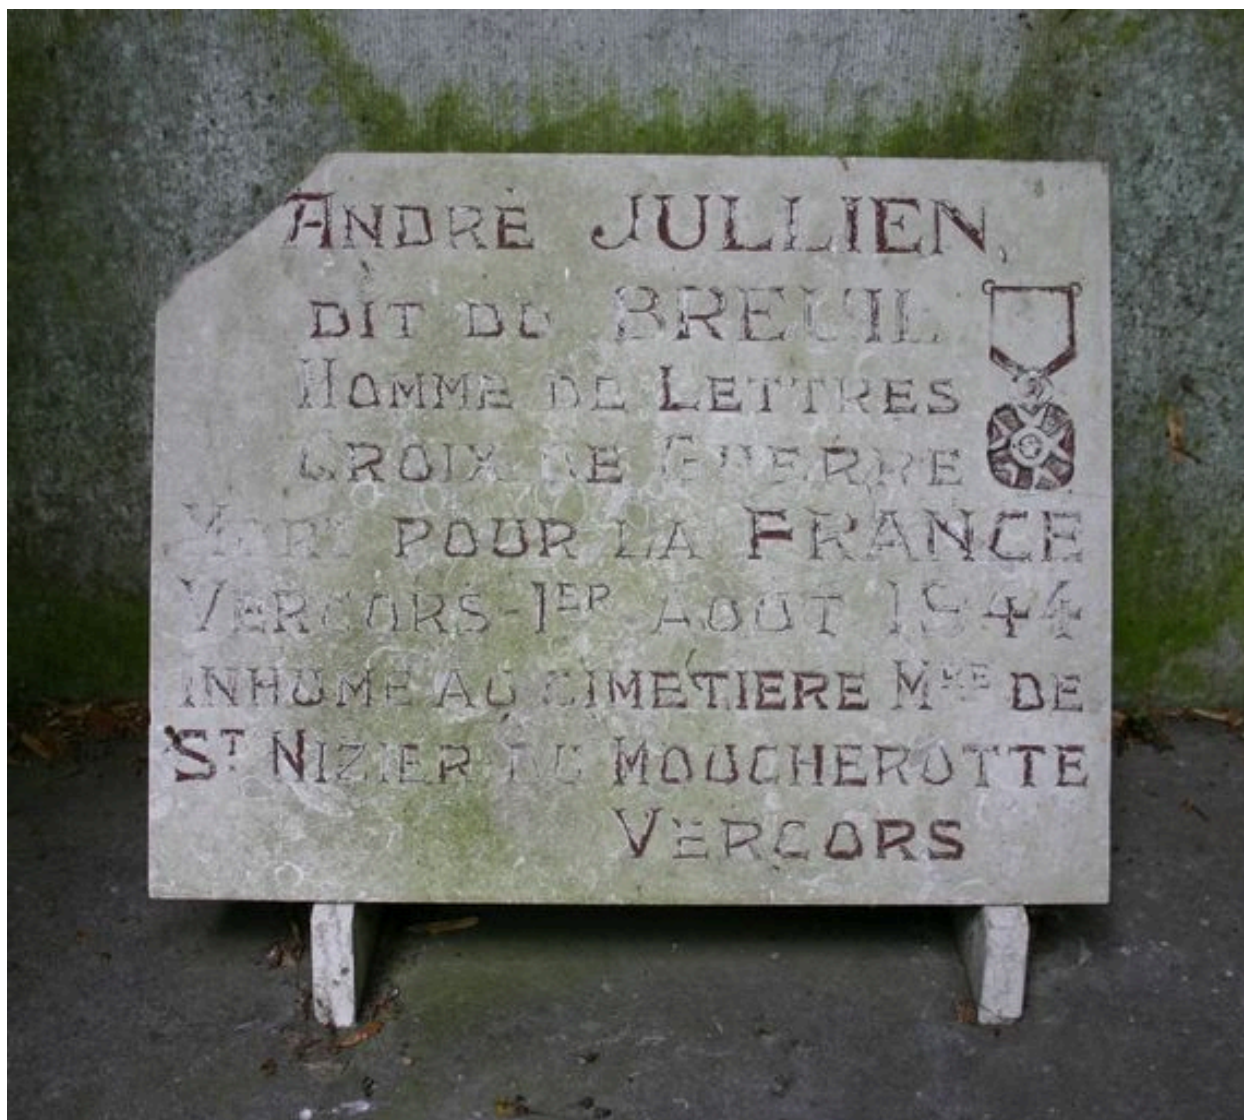 ANDRÉ JULLIEN,
DIT DU BREUIL
HOMME DE LETTRES
CROIX DE GUERRE
MORT POUR LA FRANCE
VERCORS-1ER AOÛT 1944
INHUMÉ AU CIMETIÈRE MRE DE
ST NIZIER DU MOUCHEROTTE
VERCORS